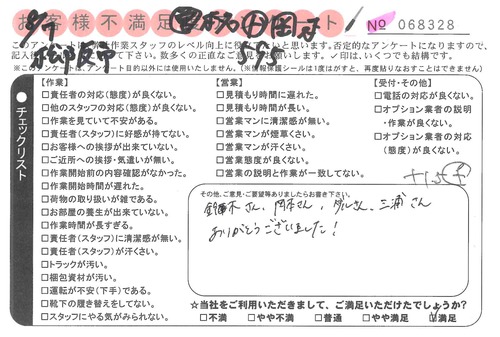 お客様不満足
ト
No 068328
このアンケートは、
作業スタッフのレベル向上に役
たいと思います。否定的なアンケートになりますので、
数多くの正直なご意見
お願いします。✓印は、いくつでも結構です。
※このアンケートは、アンケート目的以外には使用いたしません。(※情報保護シールは1度はがすと、再度貼りなおすことはできません)
チェックリスト
【作業】
□責任者の対応(態度)が良くない。
□他のスタッフの対応(態度)が良くない。
□作業を見ていて不安がある。
□責任者(スタッフ)に好感が持てない。
□お客様への挨拶が出来ていない。
□ご近所への挨拶・気遣いが無い。
□作業開始前の内容確認がなかった。
□作業開始時間が遅れた。
□荷物の取り扱いが雑である。
□お部屋の養生が出来ていない。
□作業時間が長すぎる。
□責任者(スタッフ)に清潔感が無い。
□責任者(スタッフ)が汗くさい。
□トラックが汚い。
□梱包資材が汚い。
□運転が不安(下手)である。
□靴下の履き替えをしてない。
□スタッフにやる気がみられない。
【営業】
□見積もり時間に遅れた。
□見積もり時間が長い。
□営業マンに清潔感が無い。
□営業マンが煙草くさい。
□営業マンが汗くさい。
□営業態度が良くない。
□営業の説明と作業が一致してない。
【受付・その他】
□電話の対応が良くない。
□オプション業者の説明
・作業が良くない。
□オプション業者の対応
(態度)が良くない。
その他、ご意見・ご要望等ありましたらお書き下さい。
鈴木さん、岡本さん、ダルさん、三浦さん
ありがとうございました!
☆当社をご利用いただきまして、ご満足いただけたでしょうか?
□不満 □やや不満 □普通 □やや満足 ☑満足